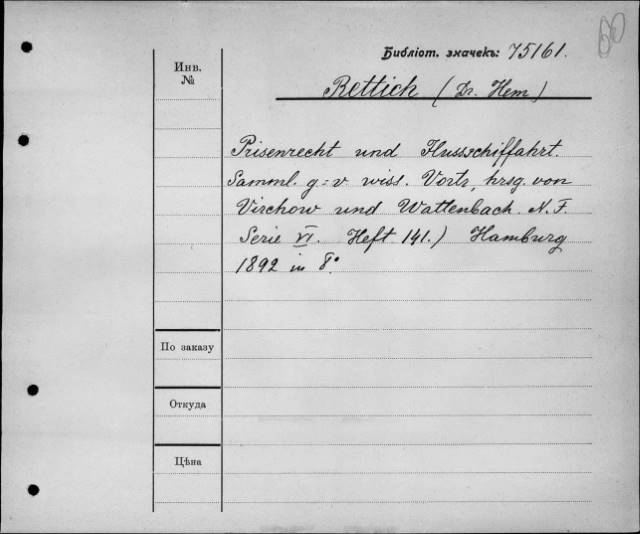 60
Библіот. значекъ: 75161.
Инв.
№
Rettich (Dr. Hem)
Prisenrecht und Flussschiffahrt.
Samml. g=v wiss. Vortr, hrsg. von
Virchow und Wattenbach. N. F.
Serie VI. Heft 141.) Hamburg
1892 in 8°.
По заказу
Откуда
Цѣна